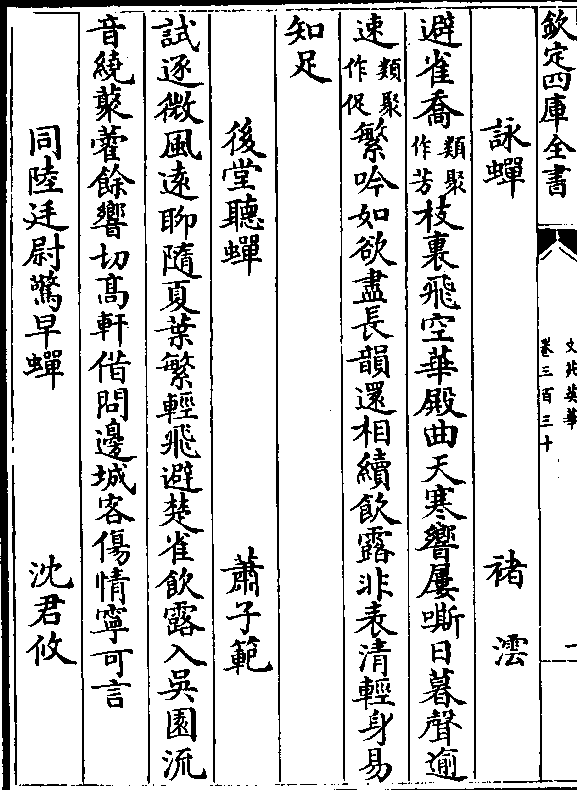 欽定四庫全書
文苑英華
卷三百三十
一
詠蟬 褚澐
避雀喬類聚作芳枝裏飛空華殿曲天寒響屢嘶日暮聲逾
速類聚作促繁吟如欲盡長韻還相續飲露非表清輕身易
知足
後堂聽蟬 蕭子範
試逐微風遠聊隨夏葉繁輕飛避楚雀飲露入吳園流
音繞藂藿餘響切高軒借問邊城客傷情寧可言
同陸廷尉驚早蟬 沈君攸